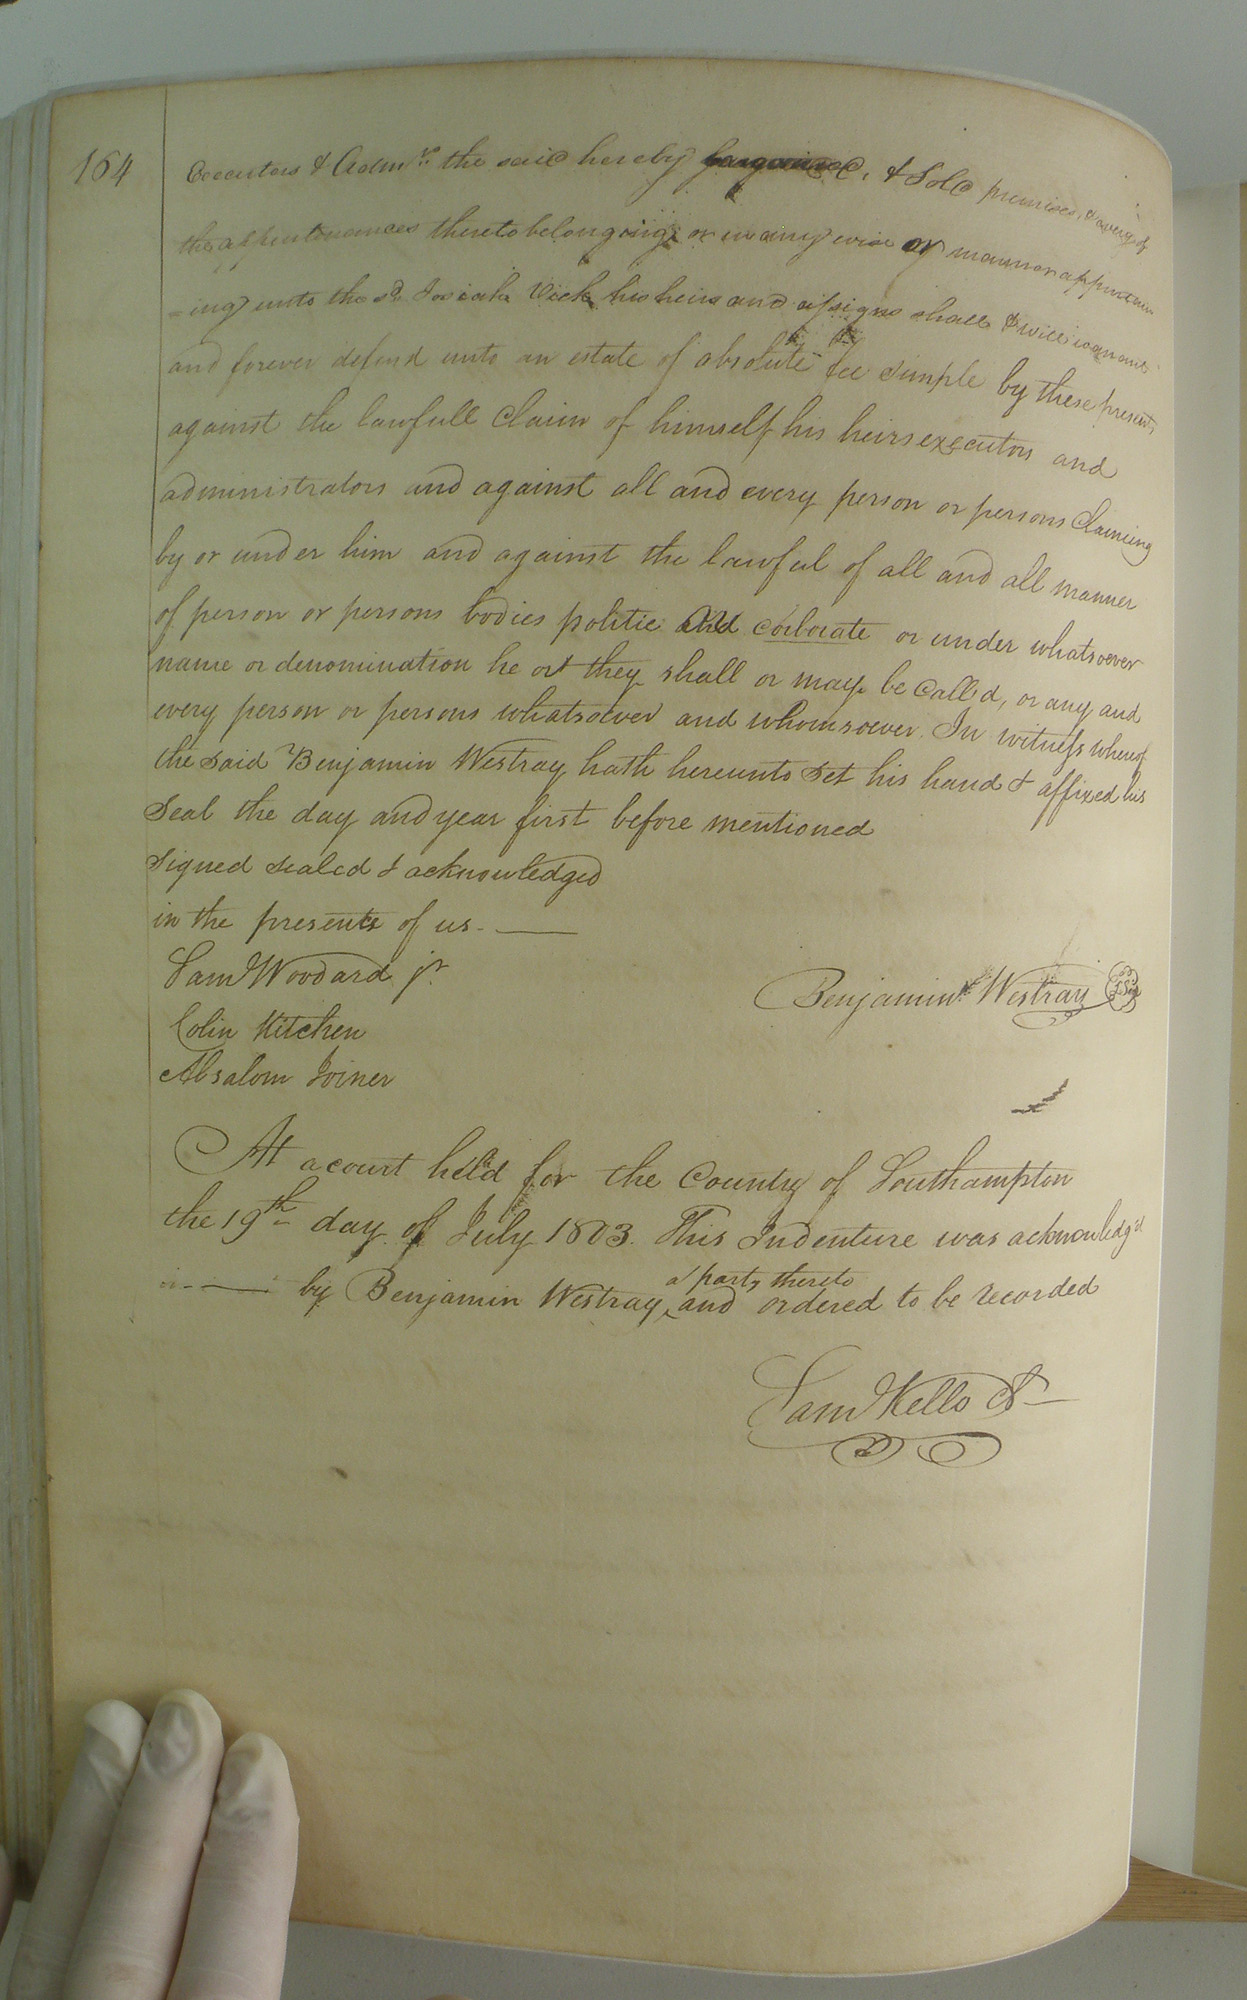 164
Executors & Admrs. the said hereby bargained, & Sold premises, & every of
the appurtenances thereto belonging or in any wise or manner appertain
=ing unto the sd. Josiah Vick his heirs and assigns shall & will warrant
and forever defend unto an estate of absolute fee simple by these presents
against the lawfull Claim of himself his heirs executors and
administrators and against all and every person or persons Claiming
by or under him and against the lawful of all and all manner
of person or persons bodies politic And corborate or under whatsoever
name or denomination he or they shall or may be Call'd, or any and
every person or persons whatsoever and whomsoever. In witness whereof
the said Benjamin Westray hath hereunto set his hand & affixed his
Seal the day and year first before mentioned
Signed sealed & acknowledged
in the presents of us.
Saml Woodard jr.
Colin Kitchen
Absalom Joiner
Benjamin Westray
At a court held for the County of Southampton
the 19th day of July 1803. This Indenture was acknowledg'd
by Benjamin Westray a party thereto and ordered to be recorded
Saml Kello